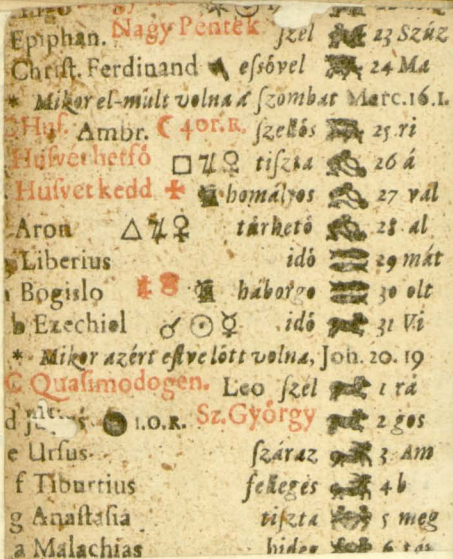 Epiphan. Nagy Péntek ſzél 23 Szűz
Chriſt. Ferdinand eſsővel 24 Ma
* Mikor el-múlt volna a' ſzombat Marc.16.1.
Huſ. Ambr. ☾ 4 or. R. ſzelłős 25 ri
Huſvet hetfő □ ♃ ♀ tiſzta 26 á
Huſvet kedd homályos 27 vál
Aron △ ♃ ♀ tűrhető 28 al
Liberius idő 29 mát
Bogislo háborgo 30 olt
b Ezechiel ☌ ☉ ☿ idő 31 Vi
* Mikor azért eſtve lött volna, Joh. 20. 19
C Quaſimodogen. Leo ſzél 1 rá
d ● 1.O.R. Sz.György 2 gos
e Ursus ſzáraz 3 Am
f Tiburtius fellegés 4 b
g Anaſtaſia tiſzta 5 meg
a Malachias hideg 6